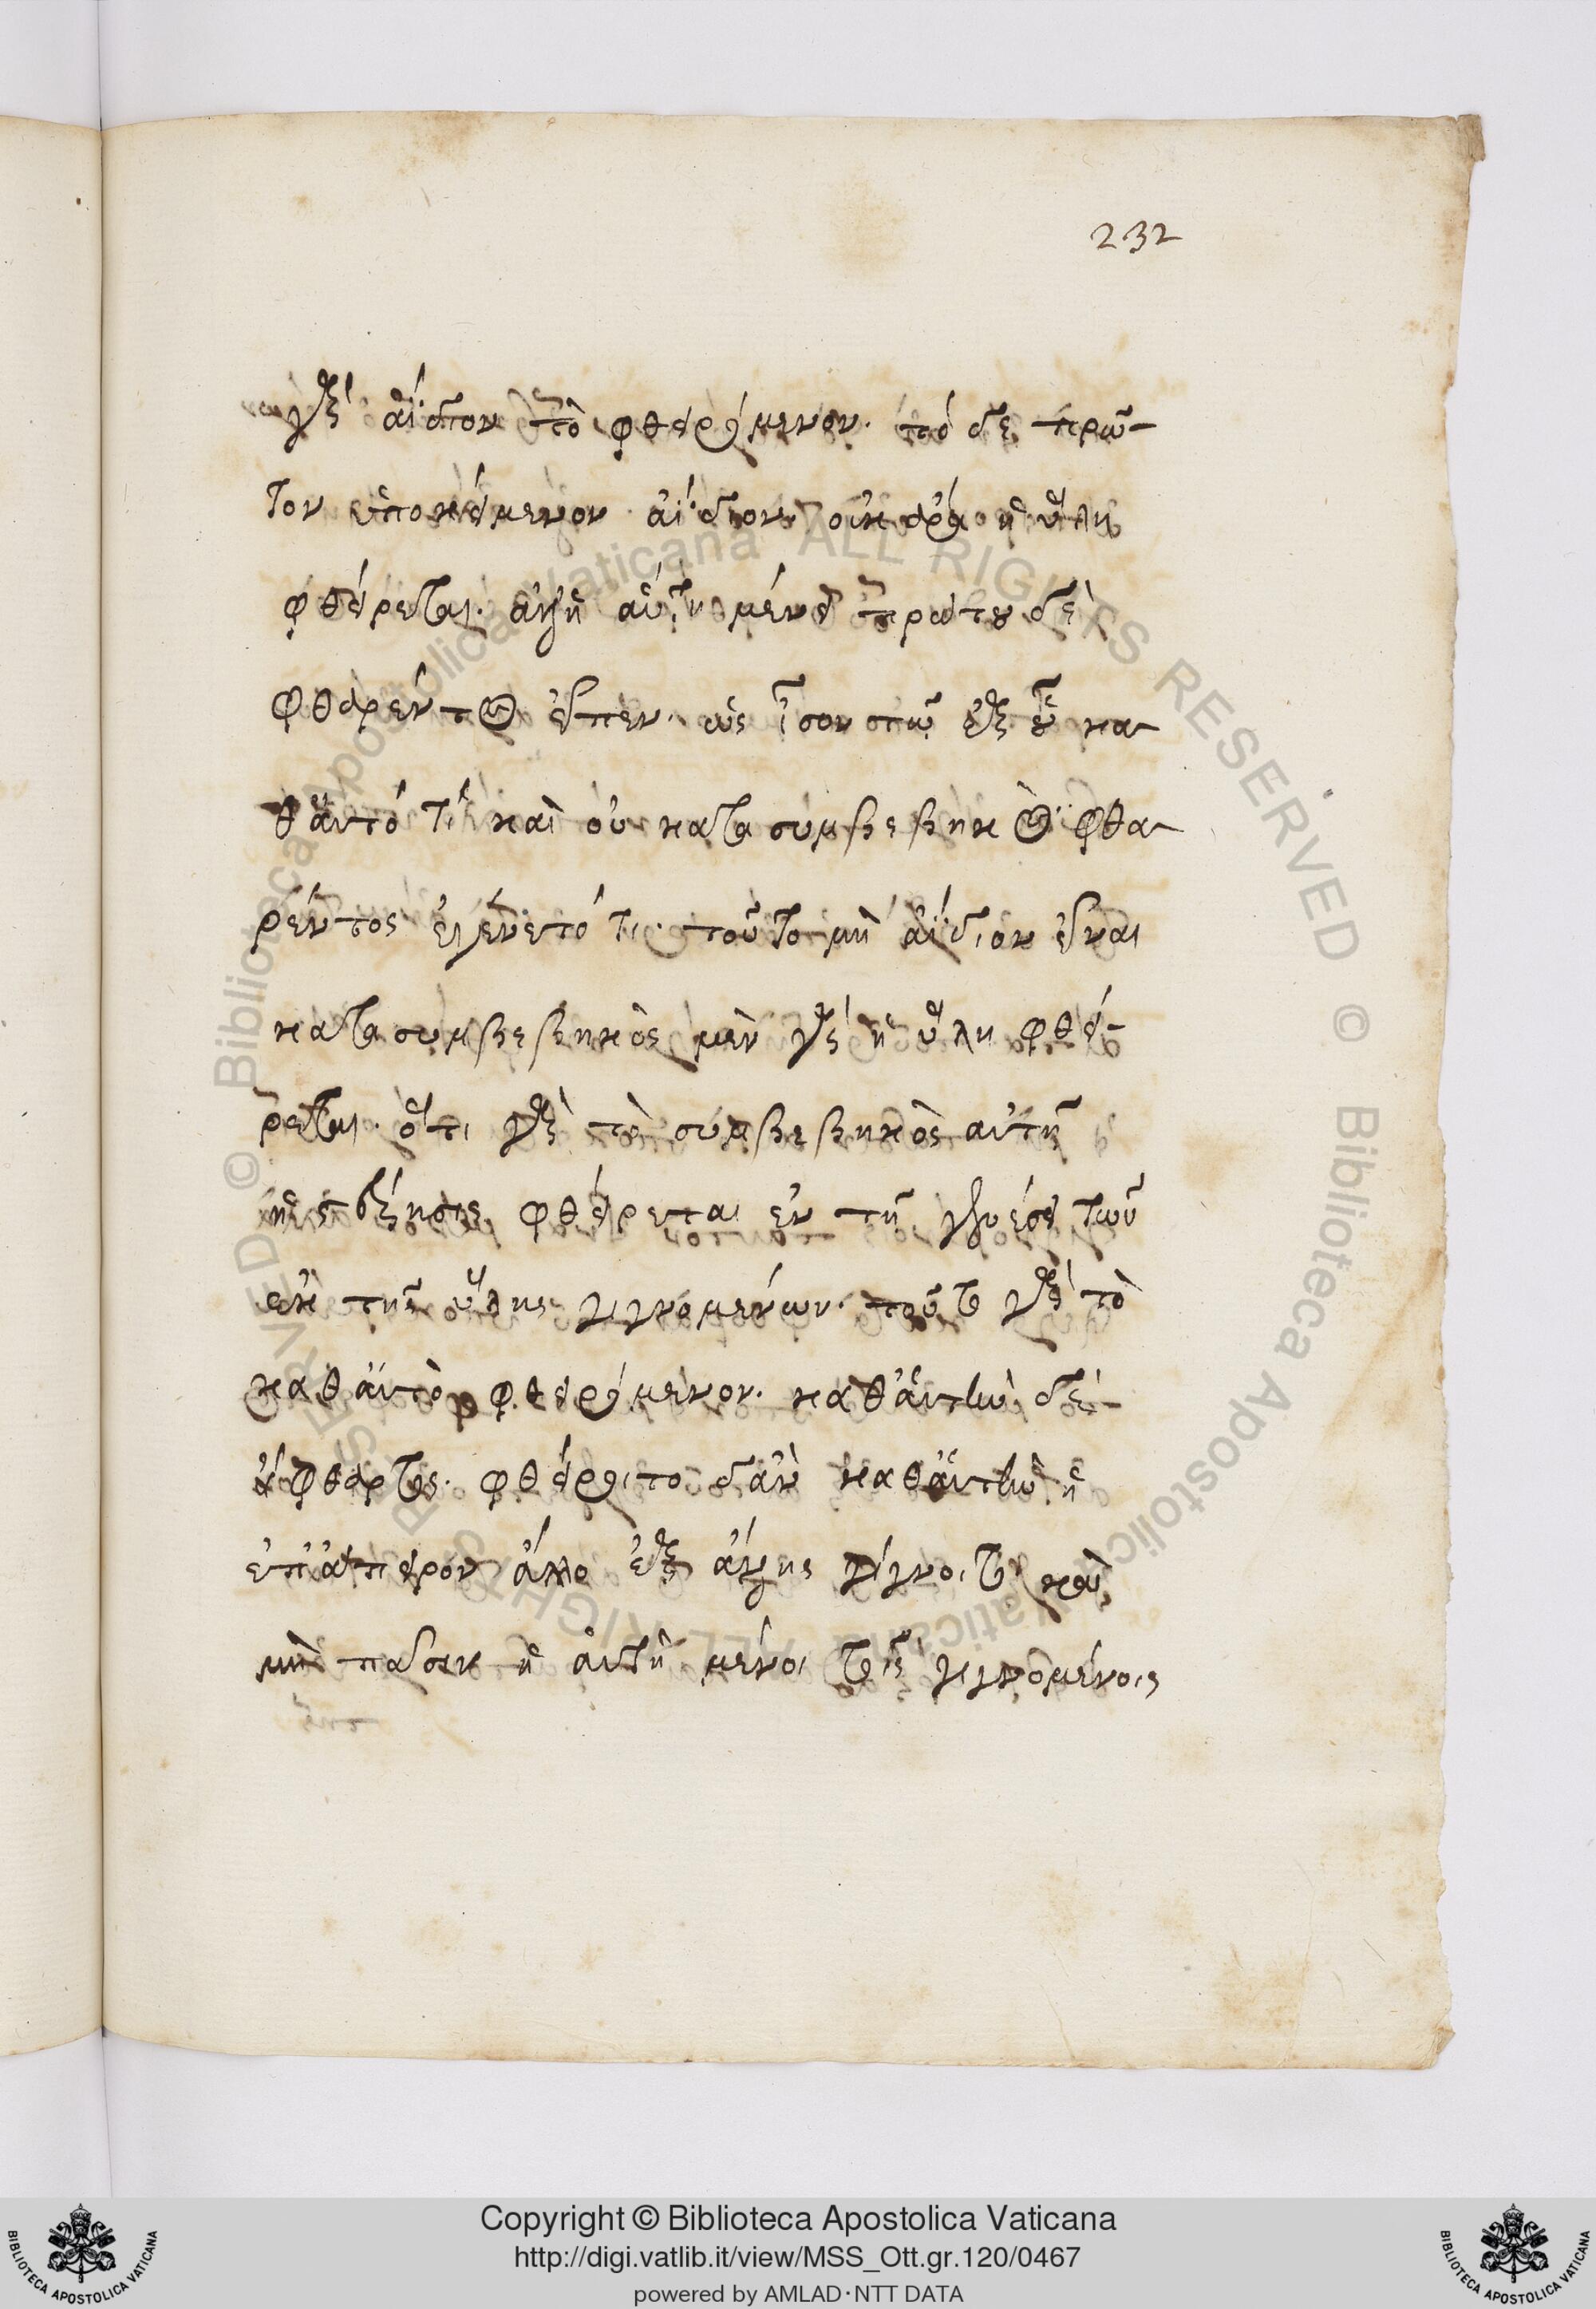 232
γὰρ ἀΐδιον τὸ φθειρόμενον. τό δε πρῶ-
τον ὑποκείμενον ἀΐδιον. οὐκ ἄρα ἡ ὕλη
φθείρεται. ἀλλ' ἢ αὕτη μένει πρώτου δὲ
φθαρέντος εἶπεν. ὡς ἴσον τῷ ἐξ οὗ κα-
θ' αὑτό τί καὶ οὐ κατα συμβεβηκὸς φθα-
ρέντος ἐγένετό τι. τοῦτο μὴ ἀΐδιον εἶναι
κατα συμβεβηκὸς μὲν γὰρ ἡ ὕλη φθεί-
ρεται. ὅτι γὰρ τὸ συμβεβηκὸς αὐτῇ
ἡ στέρησις φθείρεται ἐν τῇ γενέσει τῶν
ἐκ τῆς ὕλης γιγνομένων. τοῦτο γὰρ τὸ
καθ' αὑτὸ φθειρόμενον. καθ' αὑτὴν δὲ
ἄφθαρτος. φθείροιτο δ' ἂν καθ' αὑτὴν ἢ
ἐπ' ἄπειρον ἄλλο ἐξ ἄλλης γίγνοιτο καὶ
μὴ πᾶσιν ἡ αὐτὴ μένοι τοῖς γιγνομένοις
Copyright © Biblioteca Apostolica Vaticana
http://digi.vatlib.it/view/MSS_Ott.gr.120/0467
powered by AMLAD·NTT DATA
BIBLIOTECA APOSTOLICA VATICANA
BIBLIOTECA APOSTOLICA VATICANA
© Biblioteca Apostolica Vaticana ALL RIGHTS RESERVED © Biblioteca Apostolica Vaticana ALL RIGHTS RESERVED